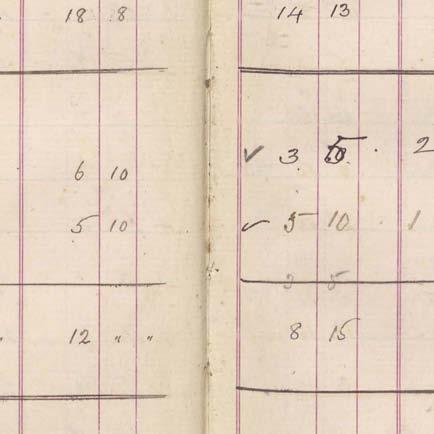 18 8
6 10
5 10
12 " "
14 13
✓ 3 5 2
✓ 5 10 1
3 5
8 15